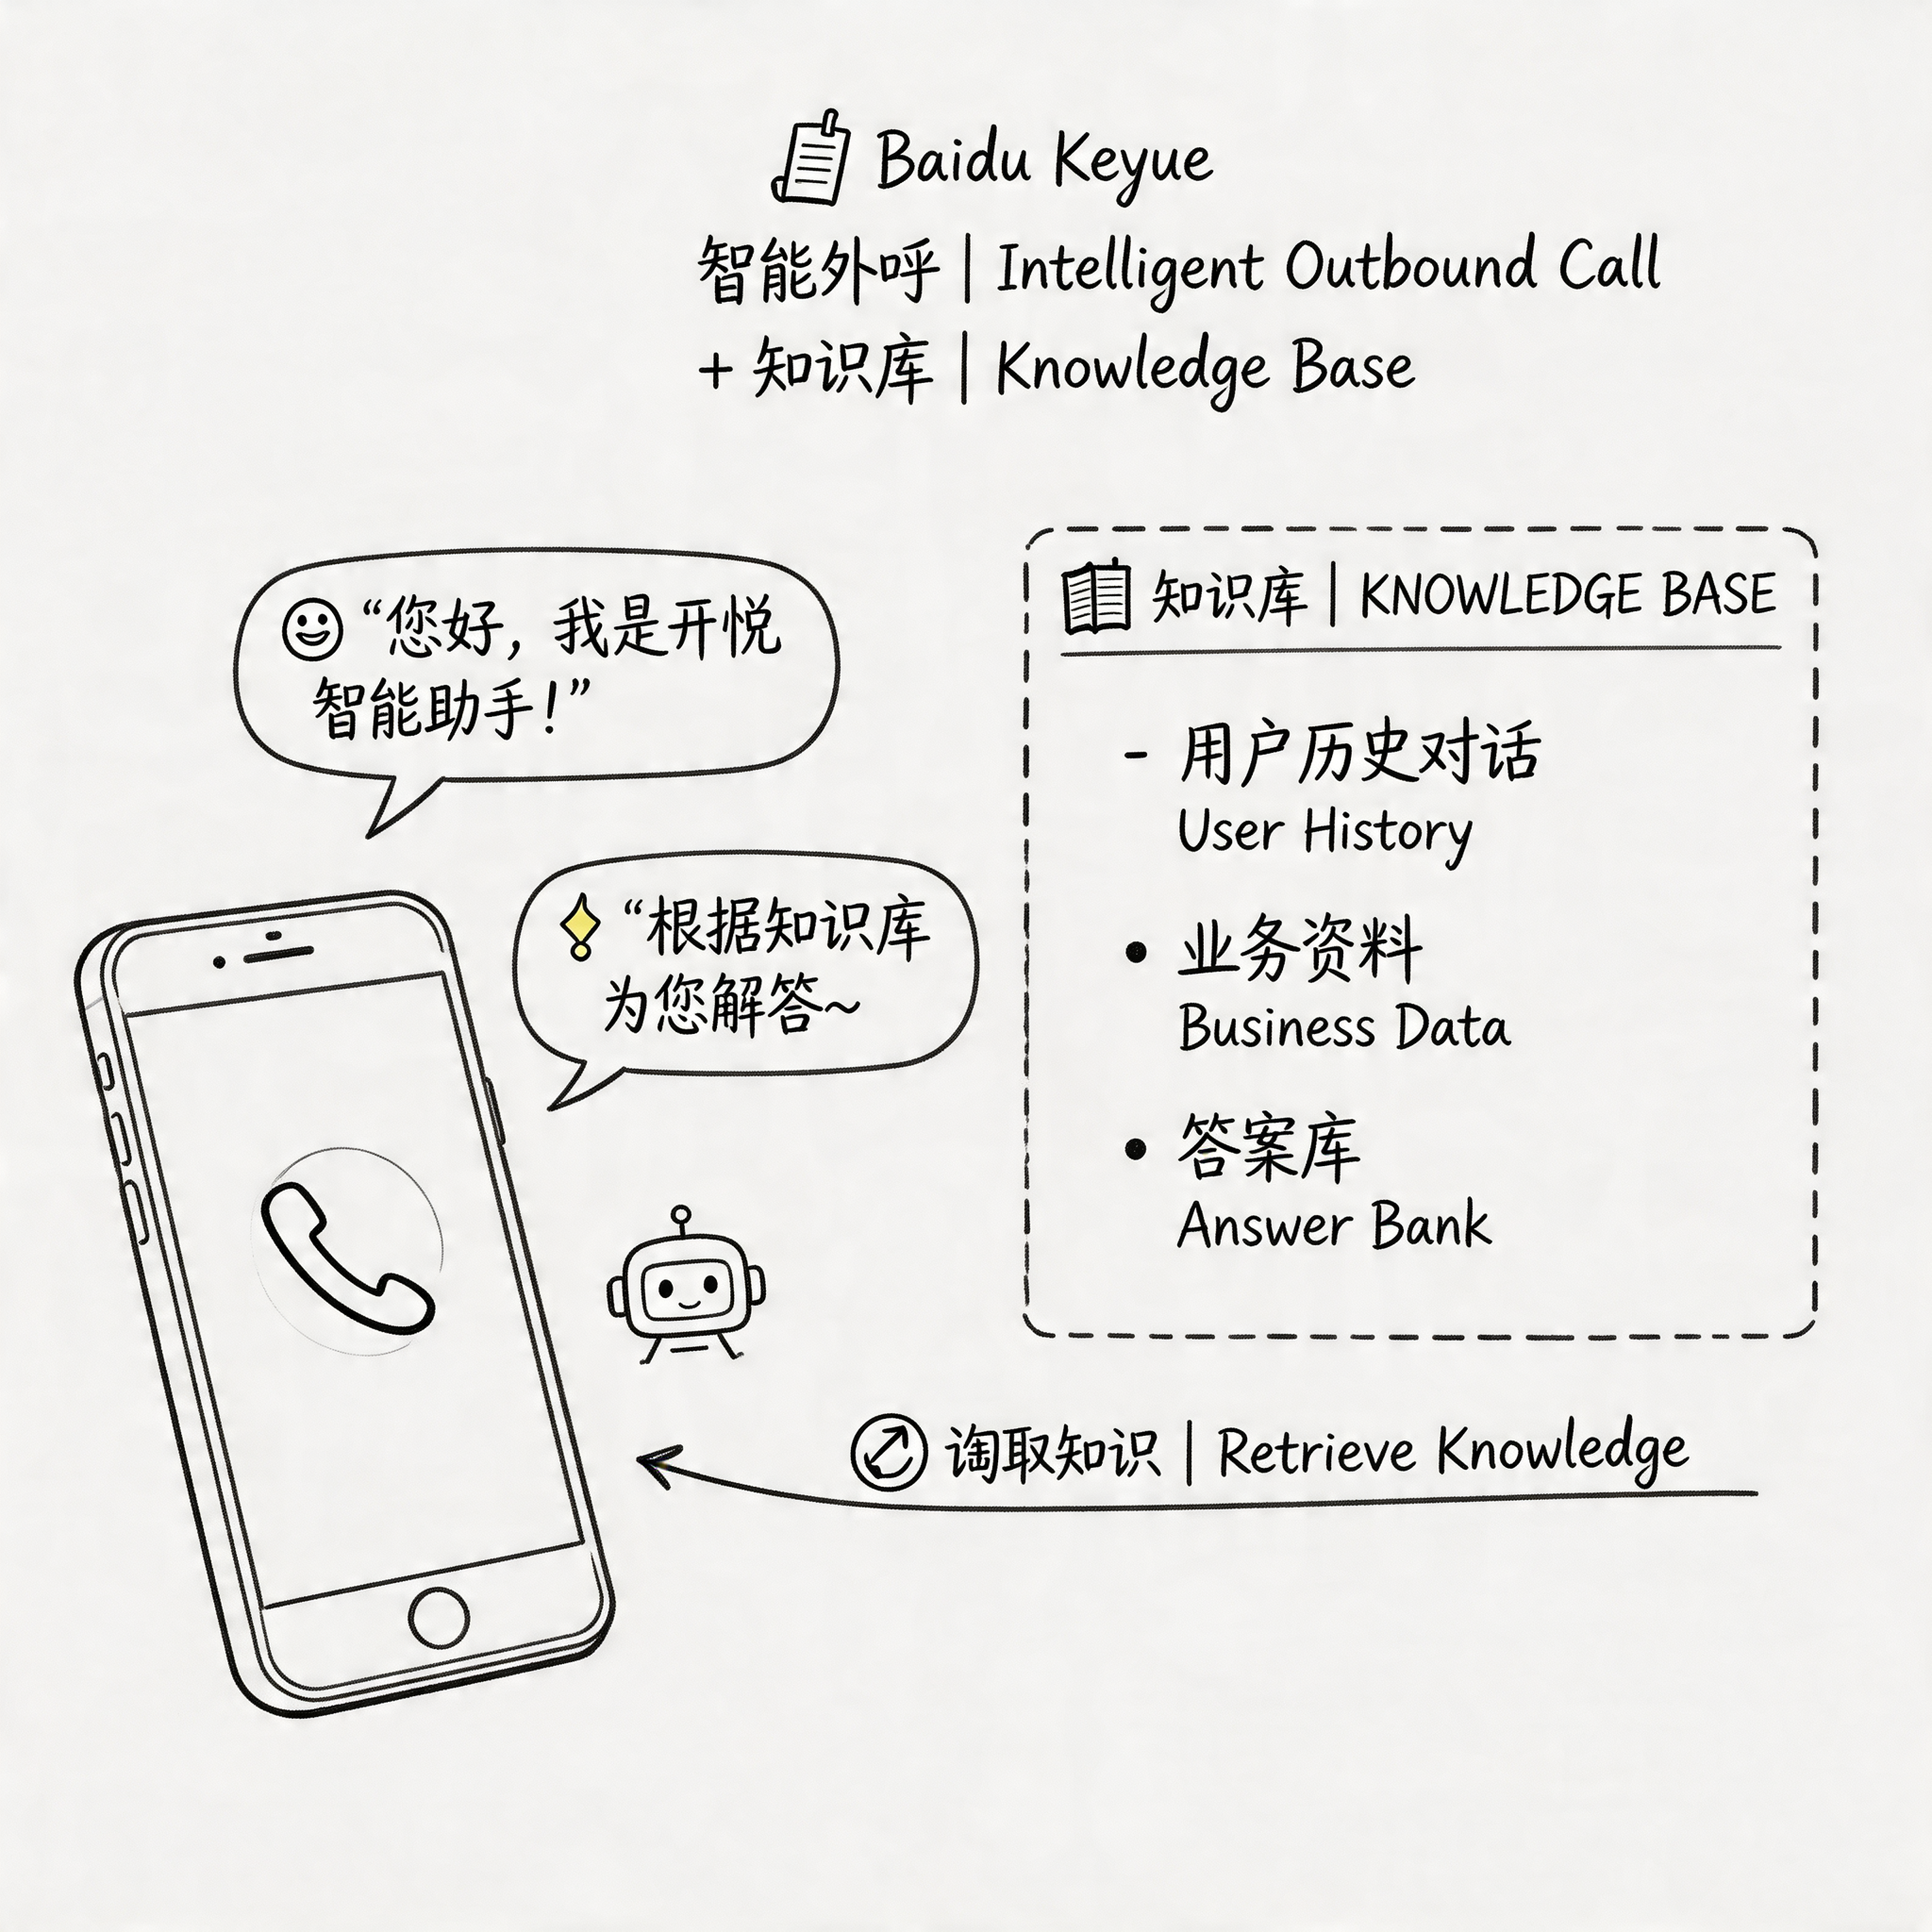 Baidu Keyue
智能外呼 | Intelligent Outbound Call
+ 知识库 | Knowledge Base
“您好，我是开悦
智能助手！”
“根据知识库
为您解答~
知识库 | KNOWLEDGE BASE
- 用户历史对话
User History
• 业务资料
Business Data
• 答案库
Answer Bank
淘取知识 | Retrieve Knowledge